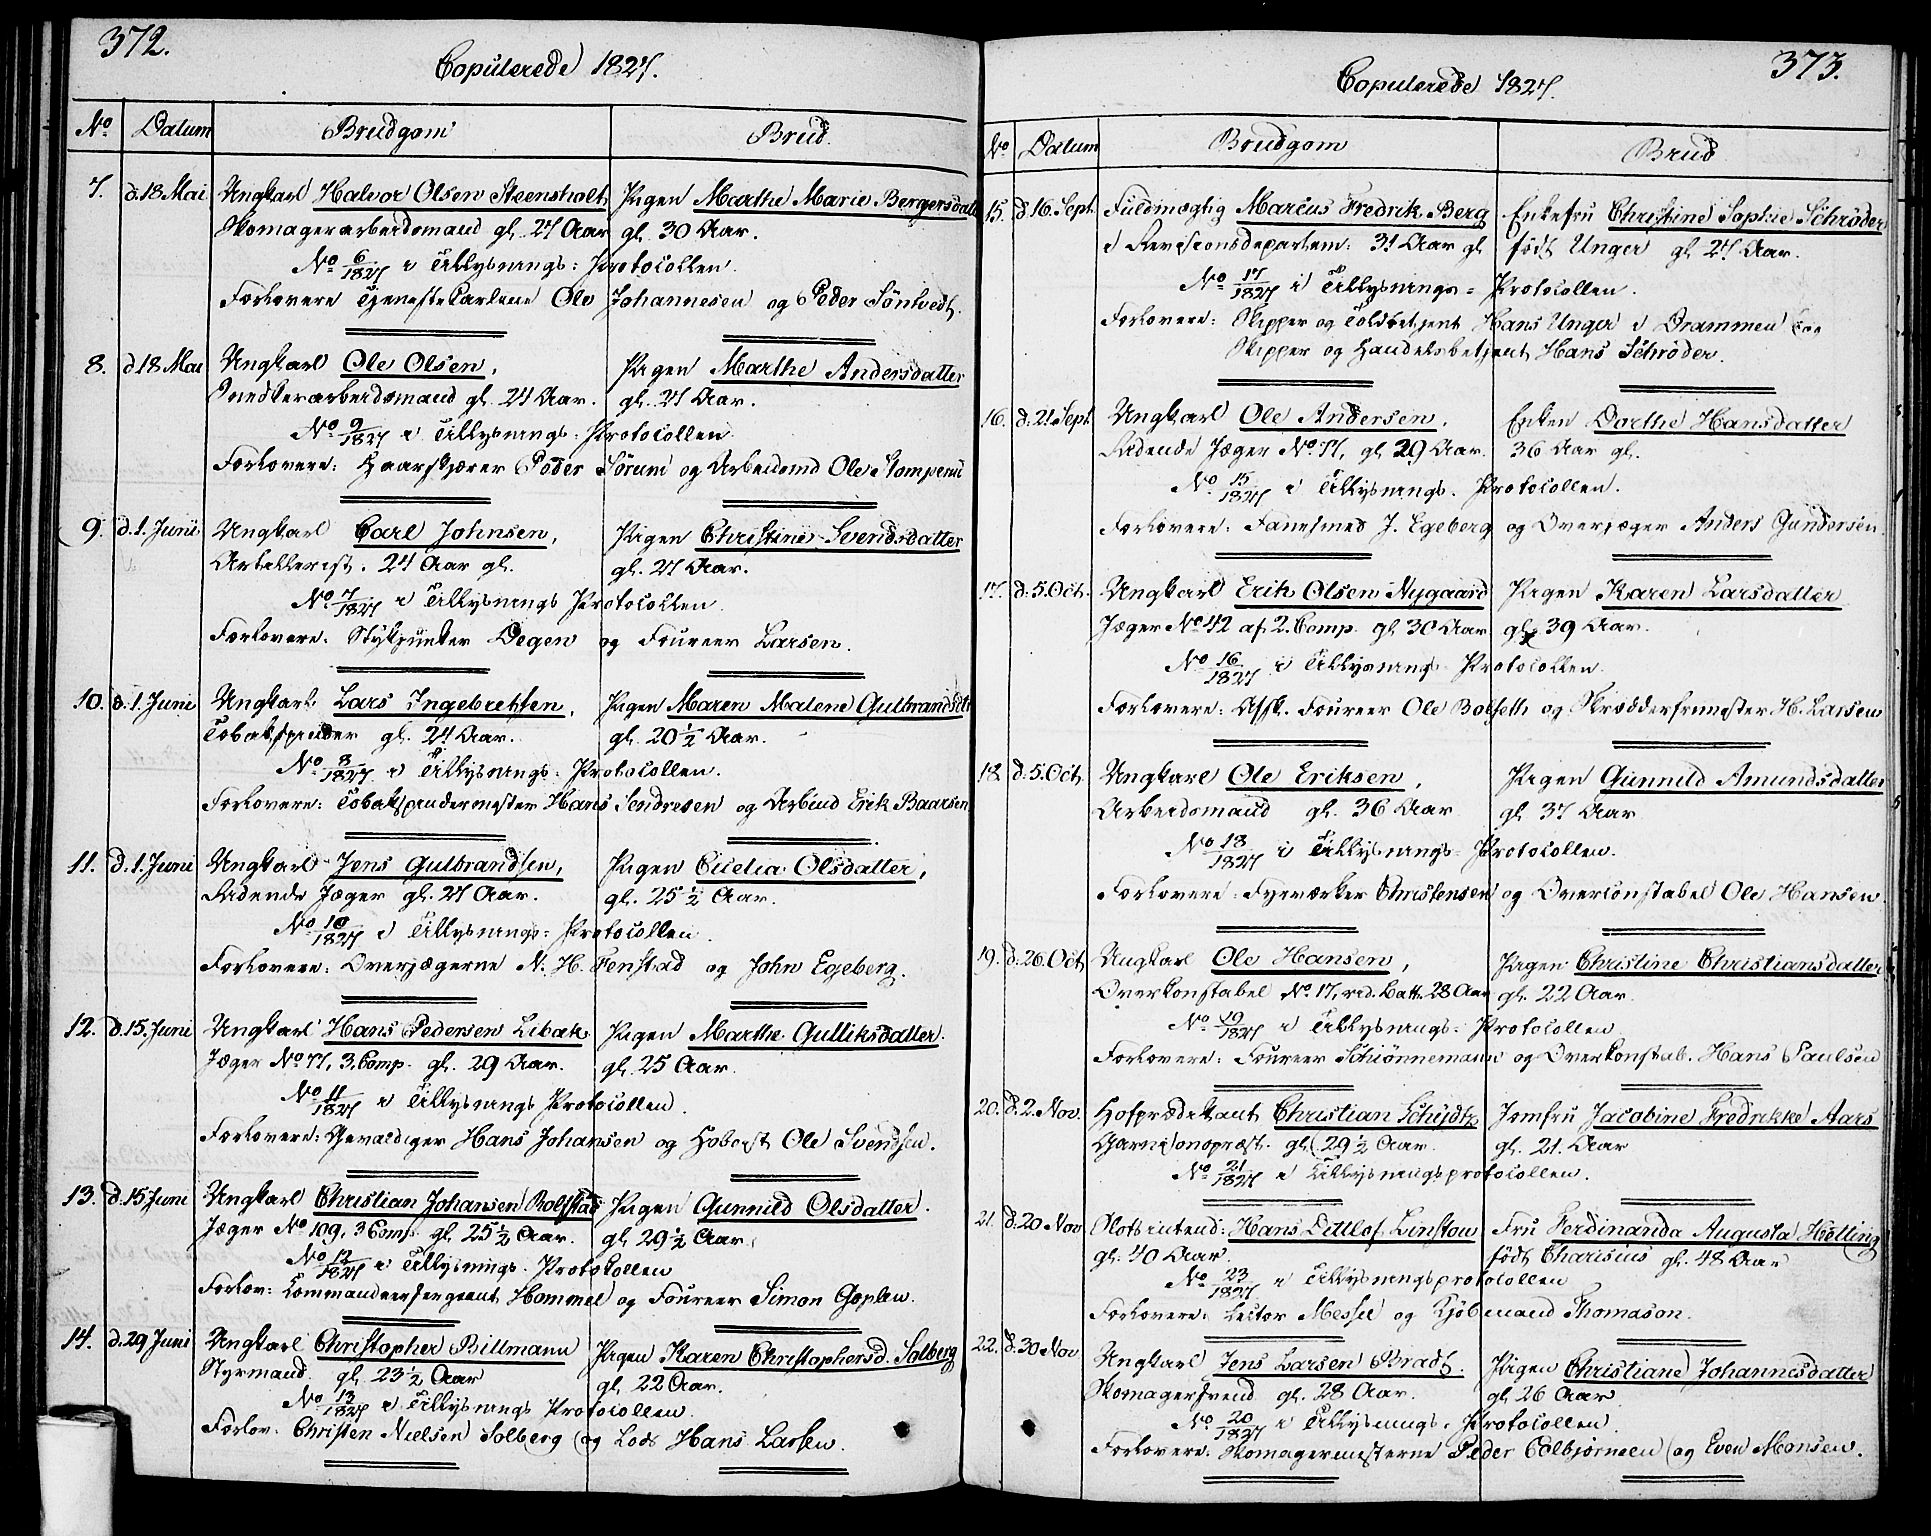 372.
Copulerede 1827.
No. Datum Brudgom Brud.
7. d. 18 Mai Ungkarl Halvor Olsen Steensholt, Pigen Marthe Marie Bergersdatt
Skomagerarbeidsmand gl. 27 Aar gl. 30 Aar.
No. 6/1827 i Tillysnings-Protocollen.
Forlovere Tjenestekarlene Ole Johannesen og Peder Söntvedt.
8. d 18 Mai Ungkarl Ole Olsen, Pigen Marthe Andersdatter
Snedkerarbeidsmand gl. 24 Aar. gl. 27 Aar.
No. 9/1827 i Tillysnings-Protocollen.
Forlovere: Haarskjærer Peder Sörum og Arbeidsmd Ole Stomperud
9. d. 1. Junii Ungkarl Carl Johnsen, Pigen Christine Svendsdatter
Artillerist. 24 Aar gl. gl. 27 Aar.
No. 7/1827 i Tillysnings Protocollen.
Forlovere: Stykjunker Degen og Foureer Larsen.
10. d. 1. Juni Ungkarl Lars Ingebretsen, Pigen Maren Malene Gulbrandsdtr
Tobakspinder gl. 24 Aar. gl. 20 1/2 Aar.
No. 8/1827 i Tillysnings-Protocollen.
Forlovere: Tobakspindermester Hans Sendresen og Arbmd Erik Baarsen
11. d. 1. Juni Ungkarl Jens Gulbrandsen, Pigen Cicelia Olsdatter,
Ridende Jæger gl. 27 Aar. gl. 25 1/2 Aar.
No. 10/1827 i Tillysnings-Protocollen.
Forlovere: Overjægerne N. H. Fenstad og John Egeberg.
12. d. 15. Juni Ungkarl Hans Pedersen Libak. Pigen Marthe Gulliksdatter.
Jæger No 77, 3. Comp. gl. 29 Aar. gl. 25 Aar.
No. 11/1827 i Tillysnings Protocollen.
Forlovere: Gevaldiger Hans Johansen og Hoboist Ole Svendsen.
13. d. 15 Juni Ungkarl Christian Johansen Rolfstad Pigen Gunnild Olsdatter.
Jæger No 109, 3 Comp. gl. 25 1/2 Aar. gl 29 1/2 Aar.
No. 12/1827 i Tillysnings-Protokollen
Forlov: Commandeersergeant Hommel og Foureer Simon Goplen.
14. d. 29 Juni Ungkarl Christopher Billmann Pigen Karen Christophersd. Solberg
Styrmand. gl. 23 1/2 Aar gl. 22 Aar.
No 13/1827 i Tillysnings Protocollen.
Forlov: Christen Nielsen Solberg og Lods Hans Larsen.
373.
Copulerede 1827.
No. Datum Brudgom Brud
15. d. 16. Sept. Fuldmægtig Marcus Fredrik Berg Enkefru Christine Sophie Schröder
i Revisionsdepartem: 31 Aar gl födt Unger gl 27 Aar.
No. 17/1827 i Tillysnings-Protocollen.
Forlovere: Skipper og Toldbetjent Hans Unger i Drammen
Skipper og Handelsbetjent Hans Schröder.
16. d. 21 Sept Ungkarl Ole Andersen, Enken Dorthe Hansdatter
Ridende Jæger No. 77, gl 29 Aar. 36 Aar gl.
No. 15/1827 i Tillysnings-Protocollen.
Forlovere: Fanesmed J. Egeberg og Overjæger Anders Gundersen.
17. d. 5. Oct. Ungkarl Erik Olsen Nygaard Pigen Karen Larsdatter
Jæger No 42 af 2. Comp. gl 30 Aar gl. 39 Aar.
No. 16/1827 i Tillysnings-Protocollen.
Forlovere: Afsk. Foureer Ole Bolseth og Skrædderfrimester H. Larsen
18. d. 5. Oct. Ungkarl Ole Eriksen, Pigen Gunnild Amundsdatter
Arbeidsmand gl. 36 Aar gl 37 Aar
No. 18/1827 i Tillysnings-Protocollen.
Forlovere: Fyrværker Christensen og Overconstabel Ole Hansen.
19. d. 26. Oct Ungkarl Ole Hansen, Pigen Christine Christiansdatter
Overkonstabel No. 17, rid. Batt. 28 Aar gl. 22 Aar.
No. 19/1827 i Tillysnings-Protocollen.
Forlovere: Foureer Schiönnemann og Overkonstab. Hans Paulsen
20. d. 2. Nov. Hofprædikant Christian Schydtz Jomfru Jacobine Fredrikke Aars
Garnisonspræst. gl. 29 1/2 Aar. gl. 21. Aar
No. 21/1827 i Tillysningsprotocollen.
21. d. 20 Nov Slotsintend: Hans Ditlof Linstow Fru Ferdinanda Augusta Hötling
gl. 40 Aar. födt Charisius gl. 48 Aar
No. 23/1827 i Tillysningsprotocollen
Forlovere: Lector Messel og Kjöbmand Thomason.
22. d. 30 Nov Ungkarl Jens Larsen Bradt. Pigen Christiane Johannesdatter
Skomagersvend gl. 28 Aar. gl 26 Aar
No. 20/1827 i Tillysnings-Protocollen.
Forlovere: Skomagermesterne Peder Colbjörnsen og Even Monsen.